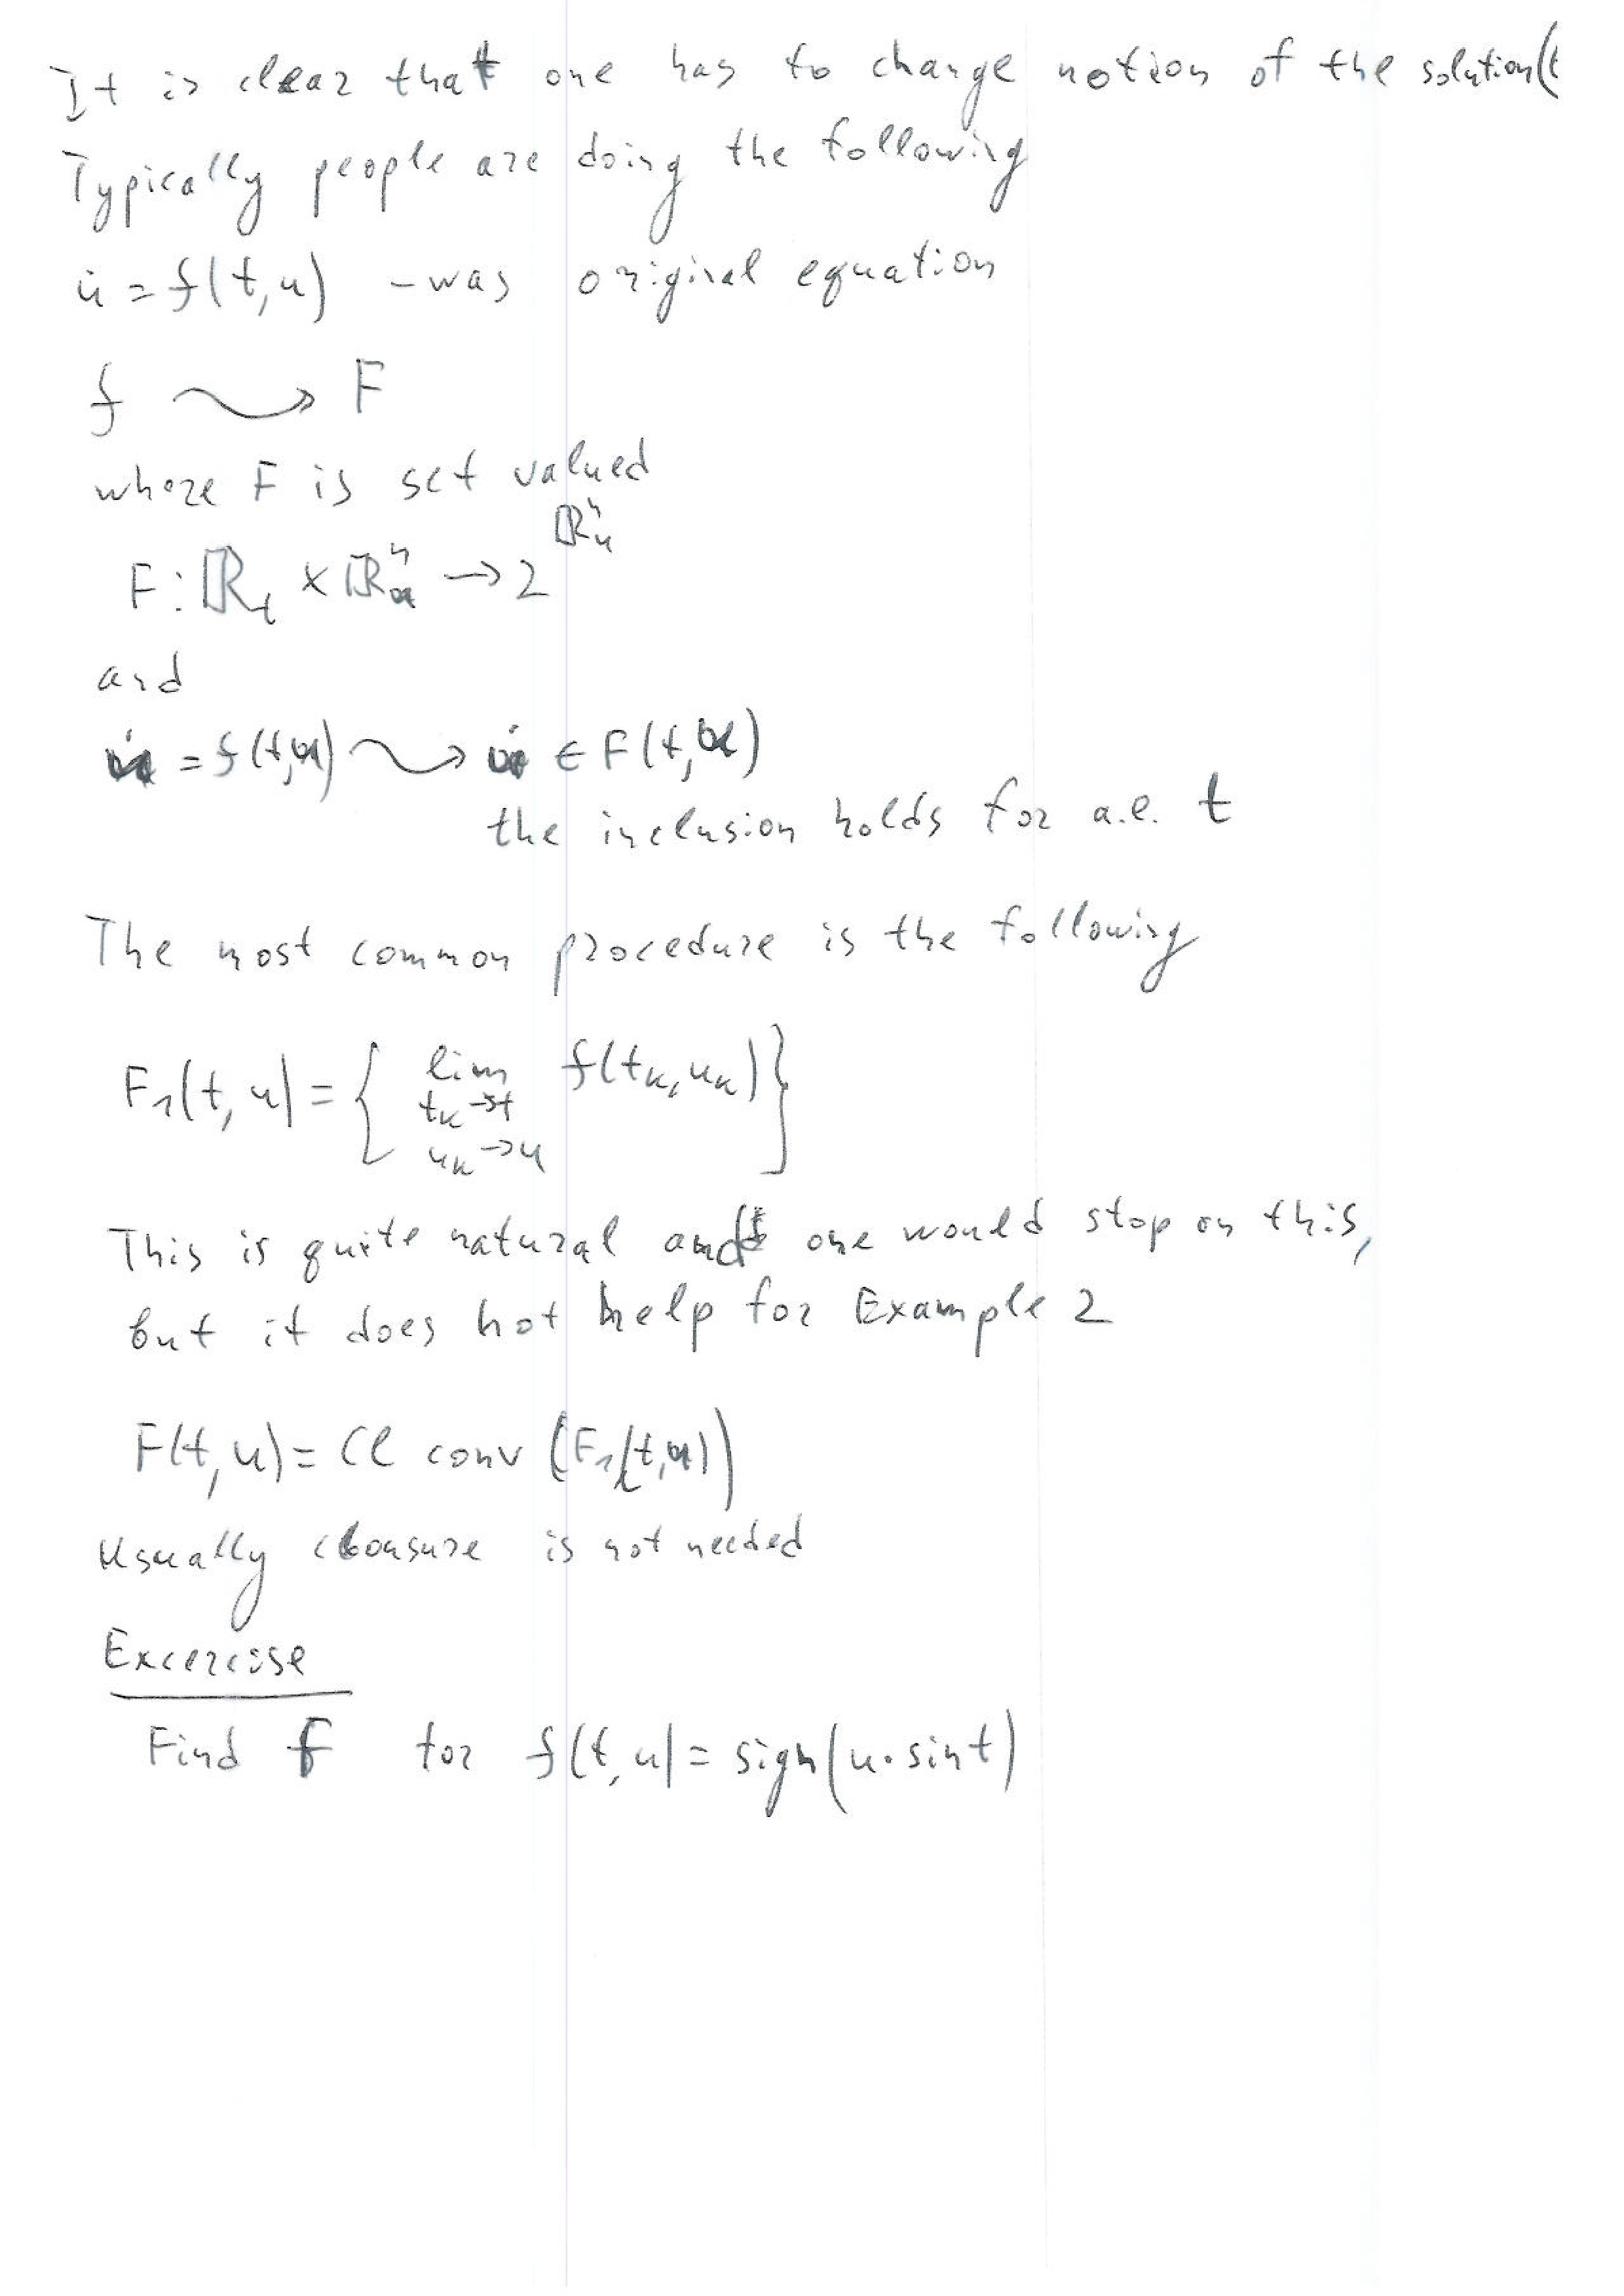 It is clear that one has to change notion of the solution(
Typically people are doing the following
u̇ = f(t,u) - was original equation
f ⇝ F
where F is set valued
F : ℝ_t × ℝ^n_u → 2^{ℝ^n_u}
and
u̇ = f(t,u) ⇝ u̇ ∈ F(t,u)
the inclusion holds for a.e. t
The most common procedure is the following
F₁(t,u) = { lim f(t_k, u_k) }
t_k → t
u_k → u
This is quite natural and one would stop on this,
but it does not help for Example 2
F(t,u) = Cl conv (F₁(t,u))
Usually closure is not needed
Excercise
Find F for f(t,u) = sign(u·sin t)